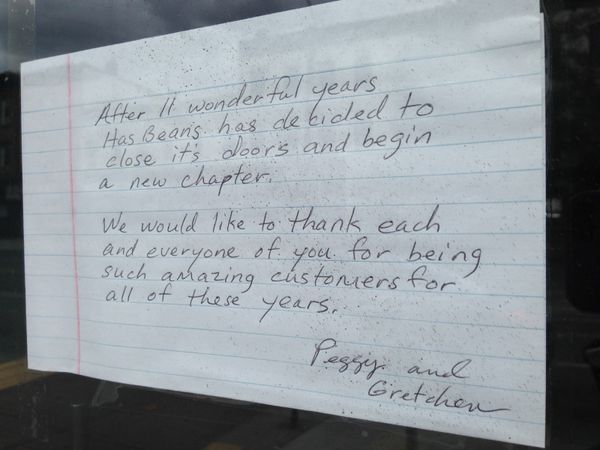 After 11 wonderful years
Has Beans has decided to
close it's doors and begin
a new chapter.
We would like to thank each
and everyone of you for being
such amazing customers for
all of these years.
Peggy and
Gretchen